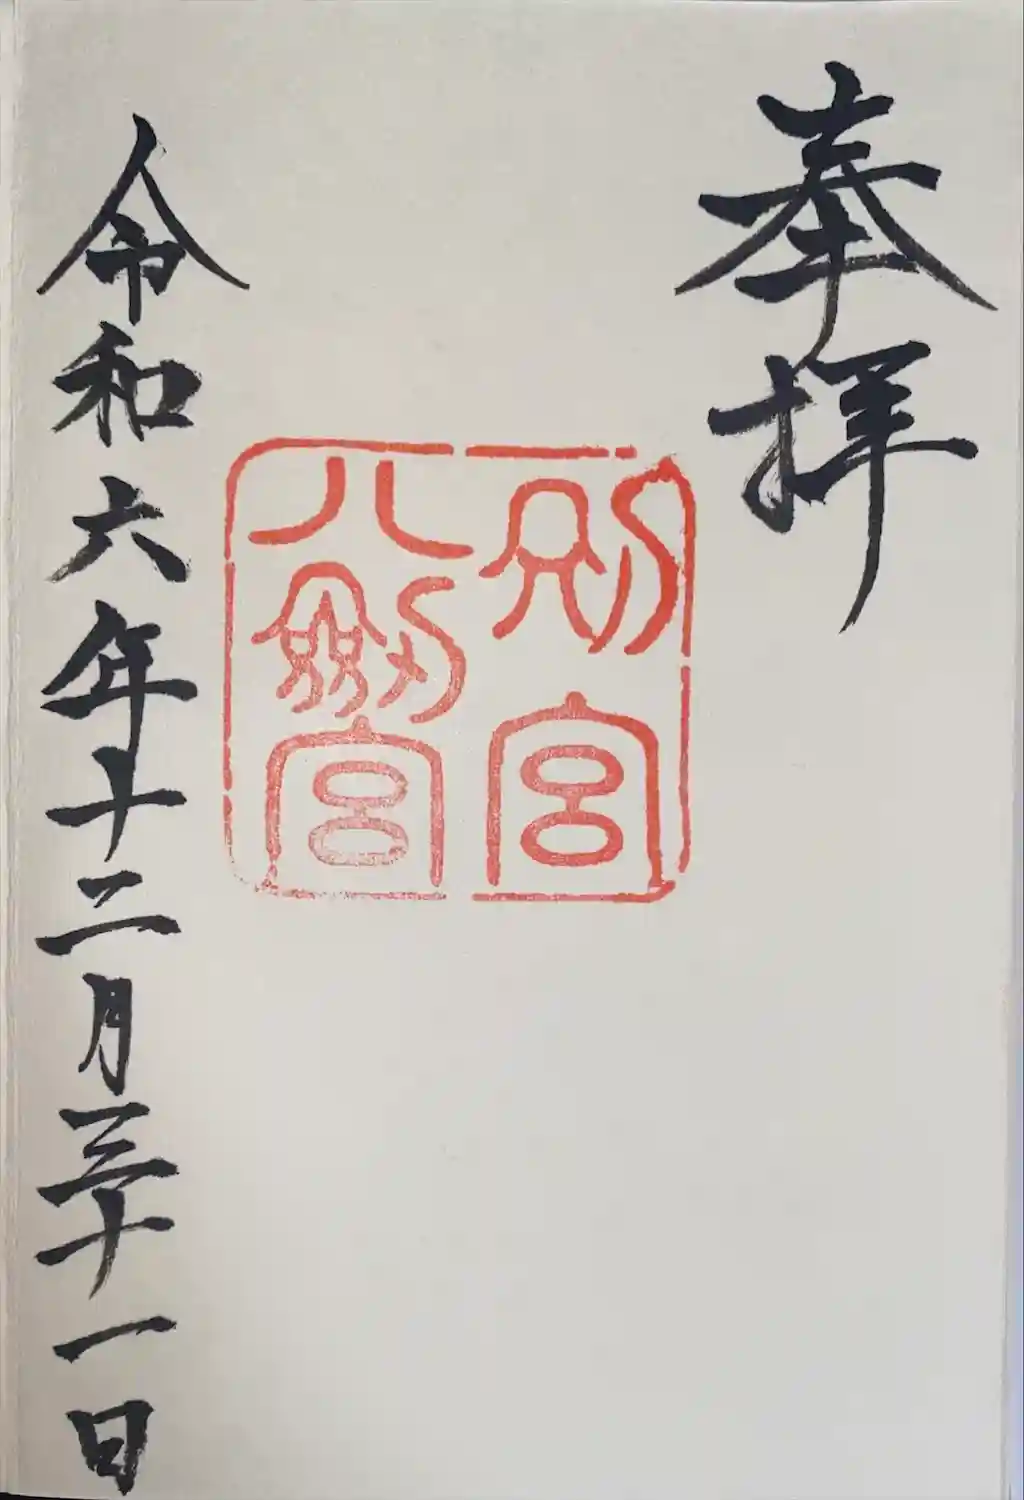 奉拝
別宮
八劔宮
令和六年十二月三十一日